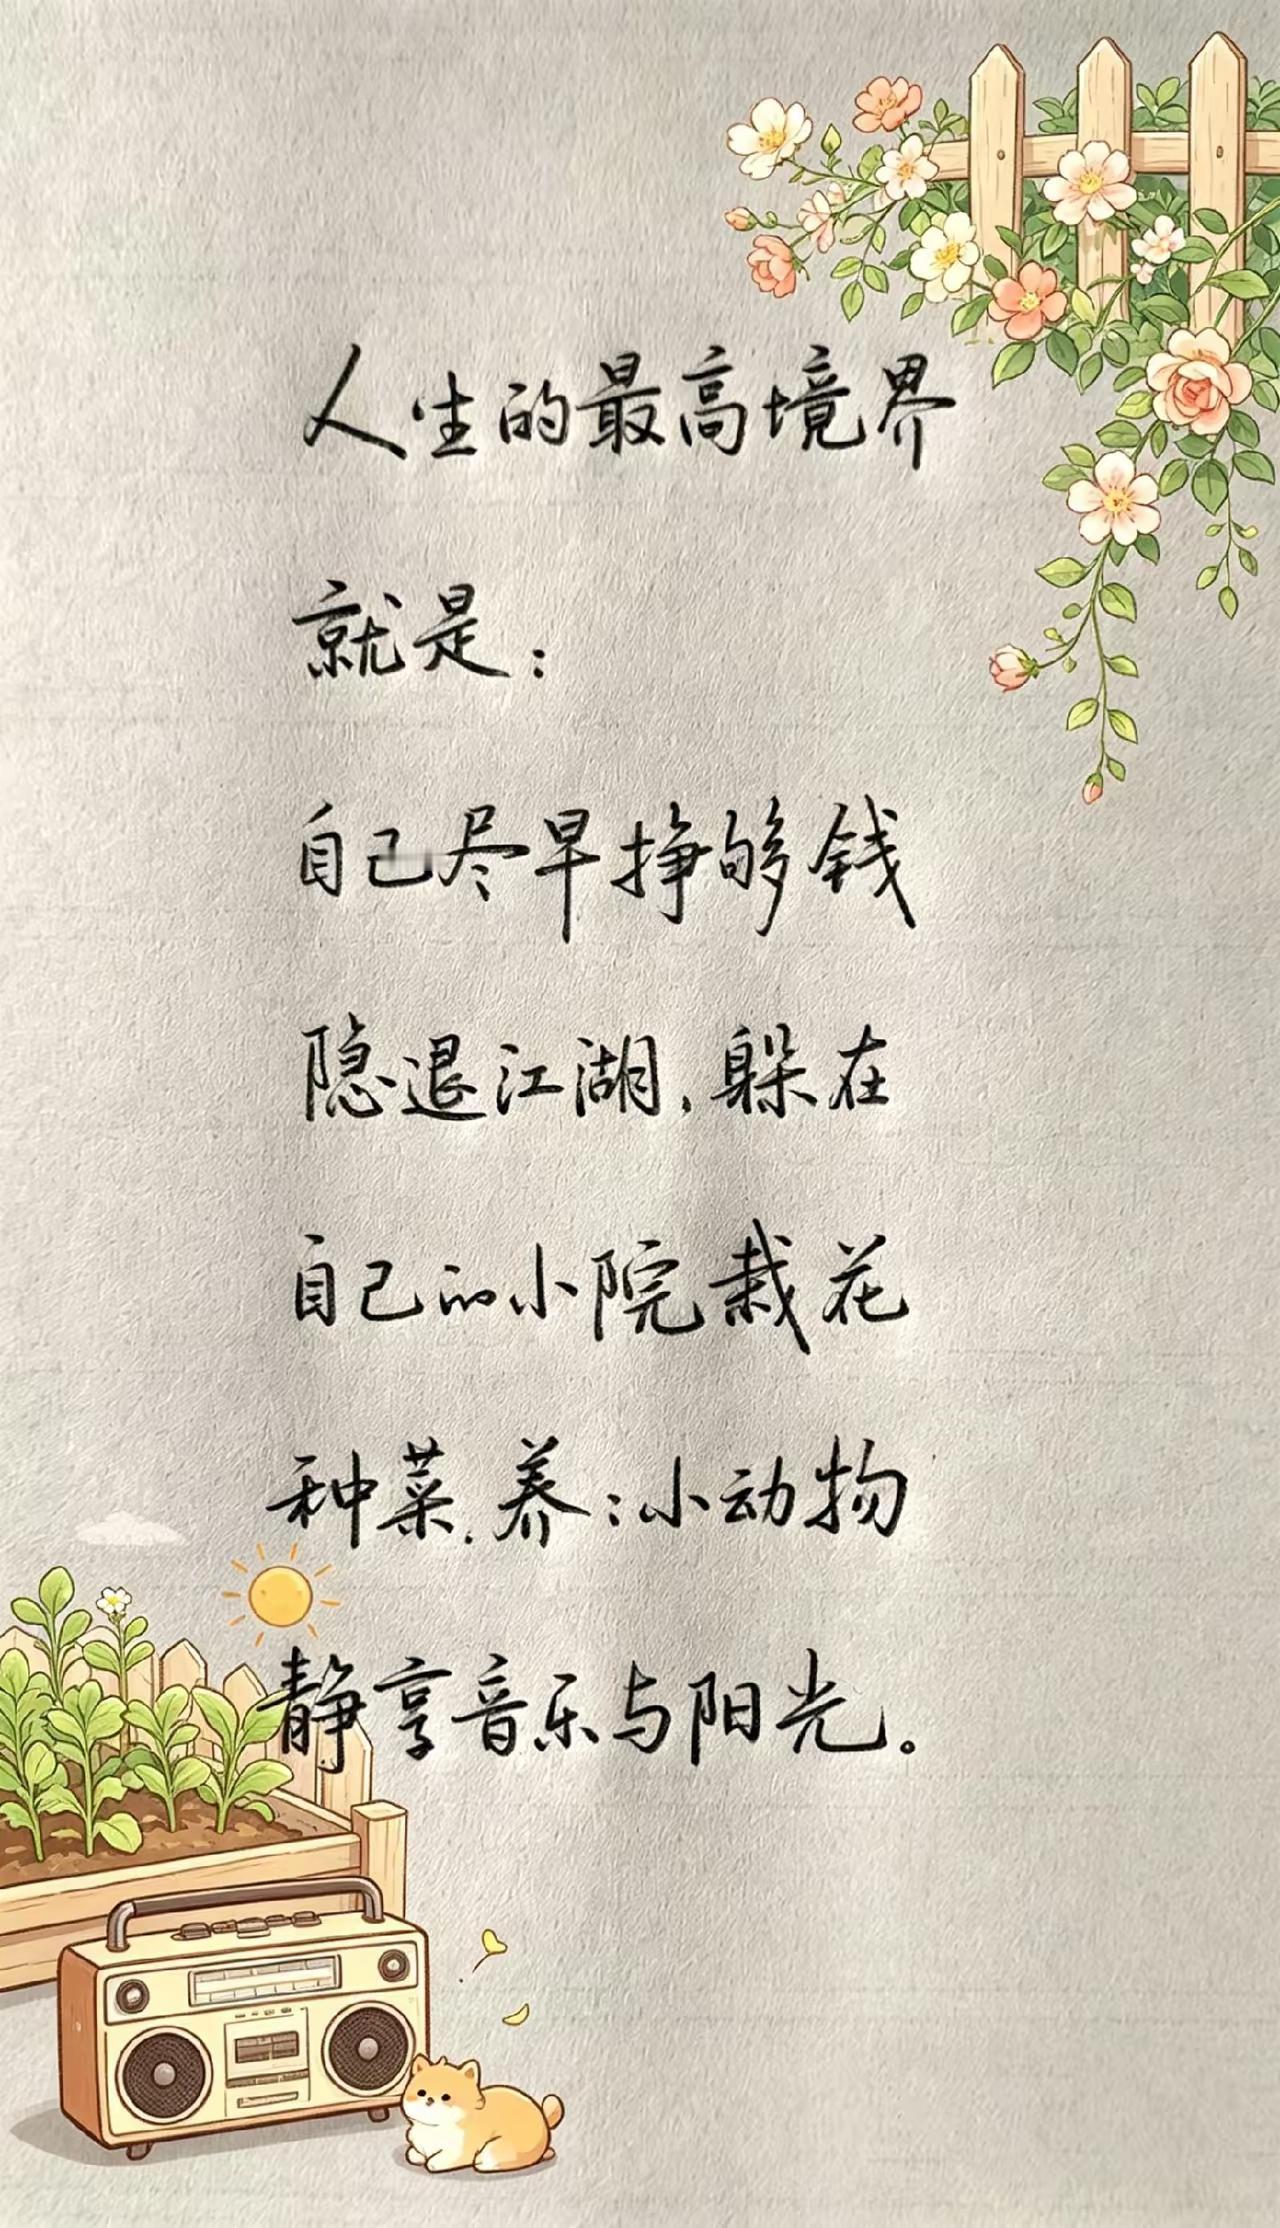 人生的最高境界
就是：
自己尽早挣够钱
隐退江湖，躲在
自己的小院栽花
种菜.养:小动物
静享音乐与阳光。